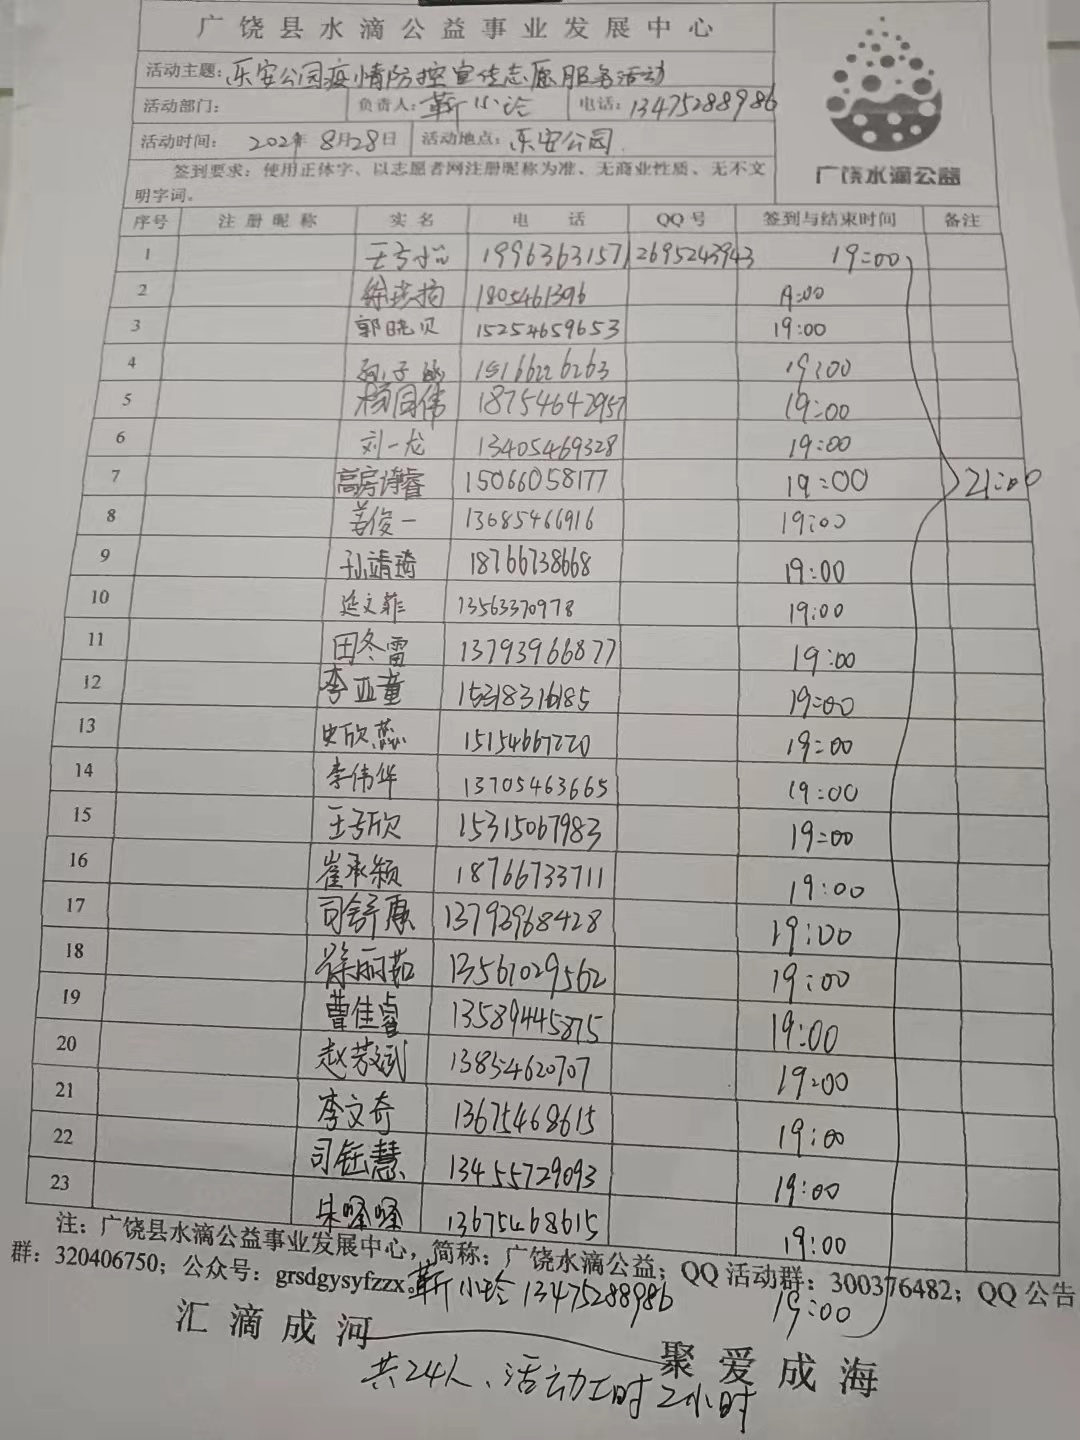 广饶县水滴公益事业发展中心
活动主题：乐安公园疫情防控宣传志愿服务活动
活动部门： 负责人：靳小玲 电话：13475288986
活动时间： 2021年8月28日 活动地点：乐安公园
签到要求：使用正体字、以志愿者网注册昵称为准、无商业性质、无不文
明字词。
广饶水滴公益
序号 注册昵称 实名 电话 QQ号 签到与结束时间 备注
1 19963631571 2695243943 19:00
2 1805461396
3 郭晓贝 15254659653 19:00
4 15166226263 19:00
5 杨同伟 18754642957 19:00
6 刘一龙 13405469328 19:00
7 高房诗睿 15066058177 19:00 21:00
8 姜俊一 13685466916 19:00
9 孙靖琦 18766738668 19:00
10 延文菲 13563370978 19:00
11 田冬雷 13793966877 19:00
12 李亚童 15318316185 19:00
13 史欣蕊 15154667220 19:00
14 李伟华 13705463665 19:00
15 王子欣 15315067983 19:00
16 崔承颖 18766733711 19:00
17 司舒康 13793968428 19:00
18 徐丽茹 13561029562 19:00
19 曹佳睿 13589445875 19:00
20 赵芳斌 13854620707 19:00
21 李文奇 13675468615 19:00
22 司钰慧 13455729093 19:00
23 朱嗪嗪 13675468615 19:00
注：广饶县水滴公益事业发展中心，简称：广饶水滴公益；QQ活动群：300376482；QQ公告
群：320406750；公众号：grsdgysyfzzx。靳小玲 13475288986 19:00
汇滴成河 聚爱成海
共24人、活动工时2小时